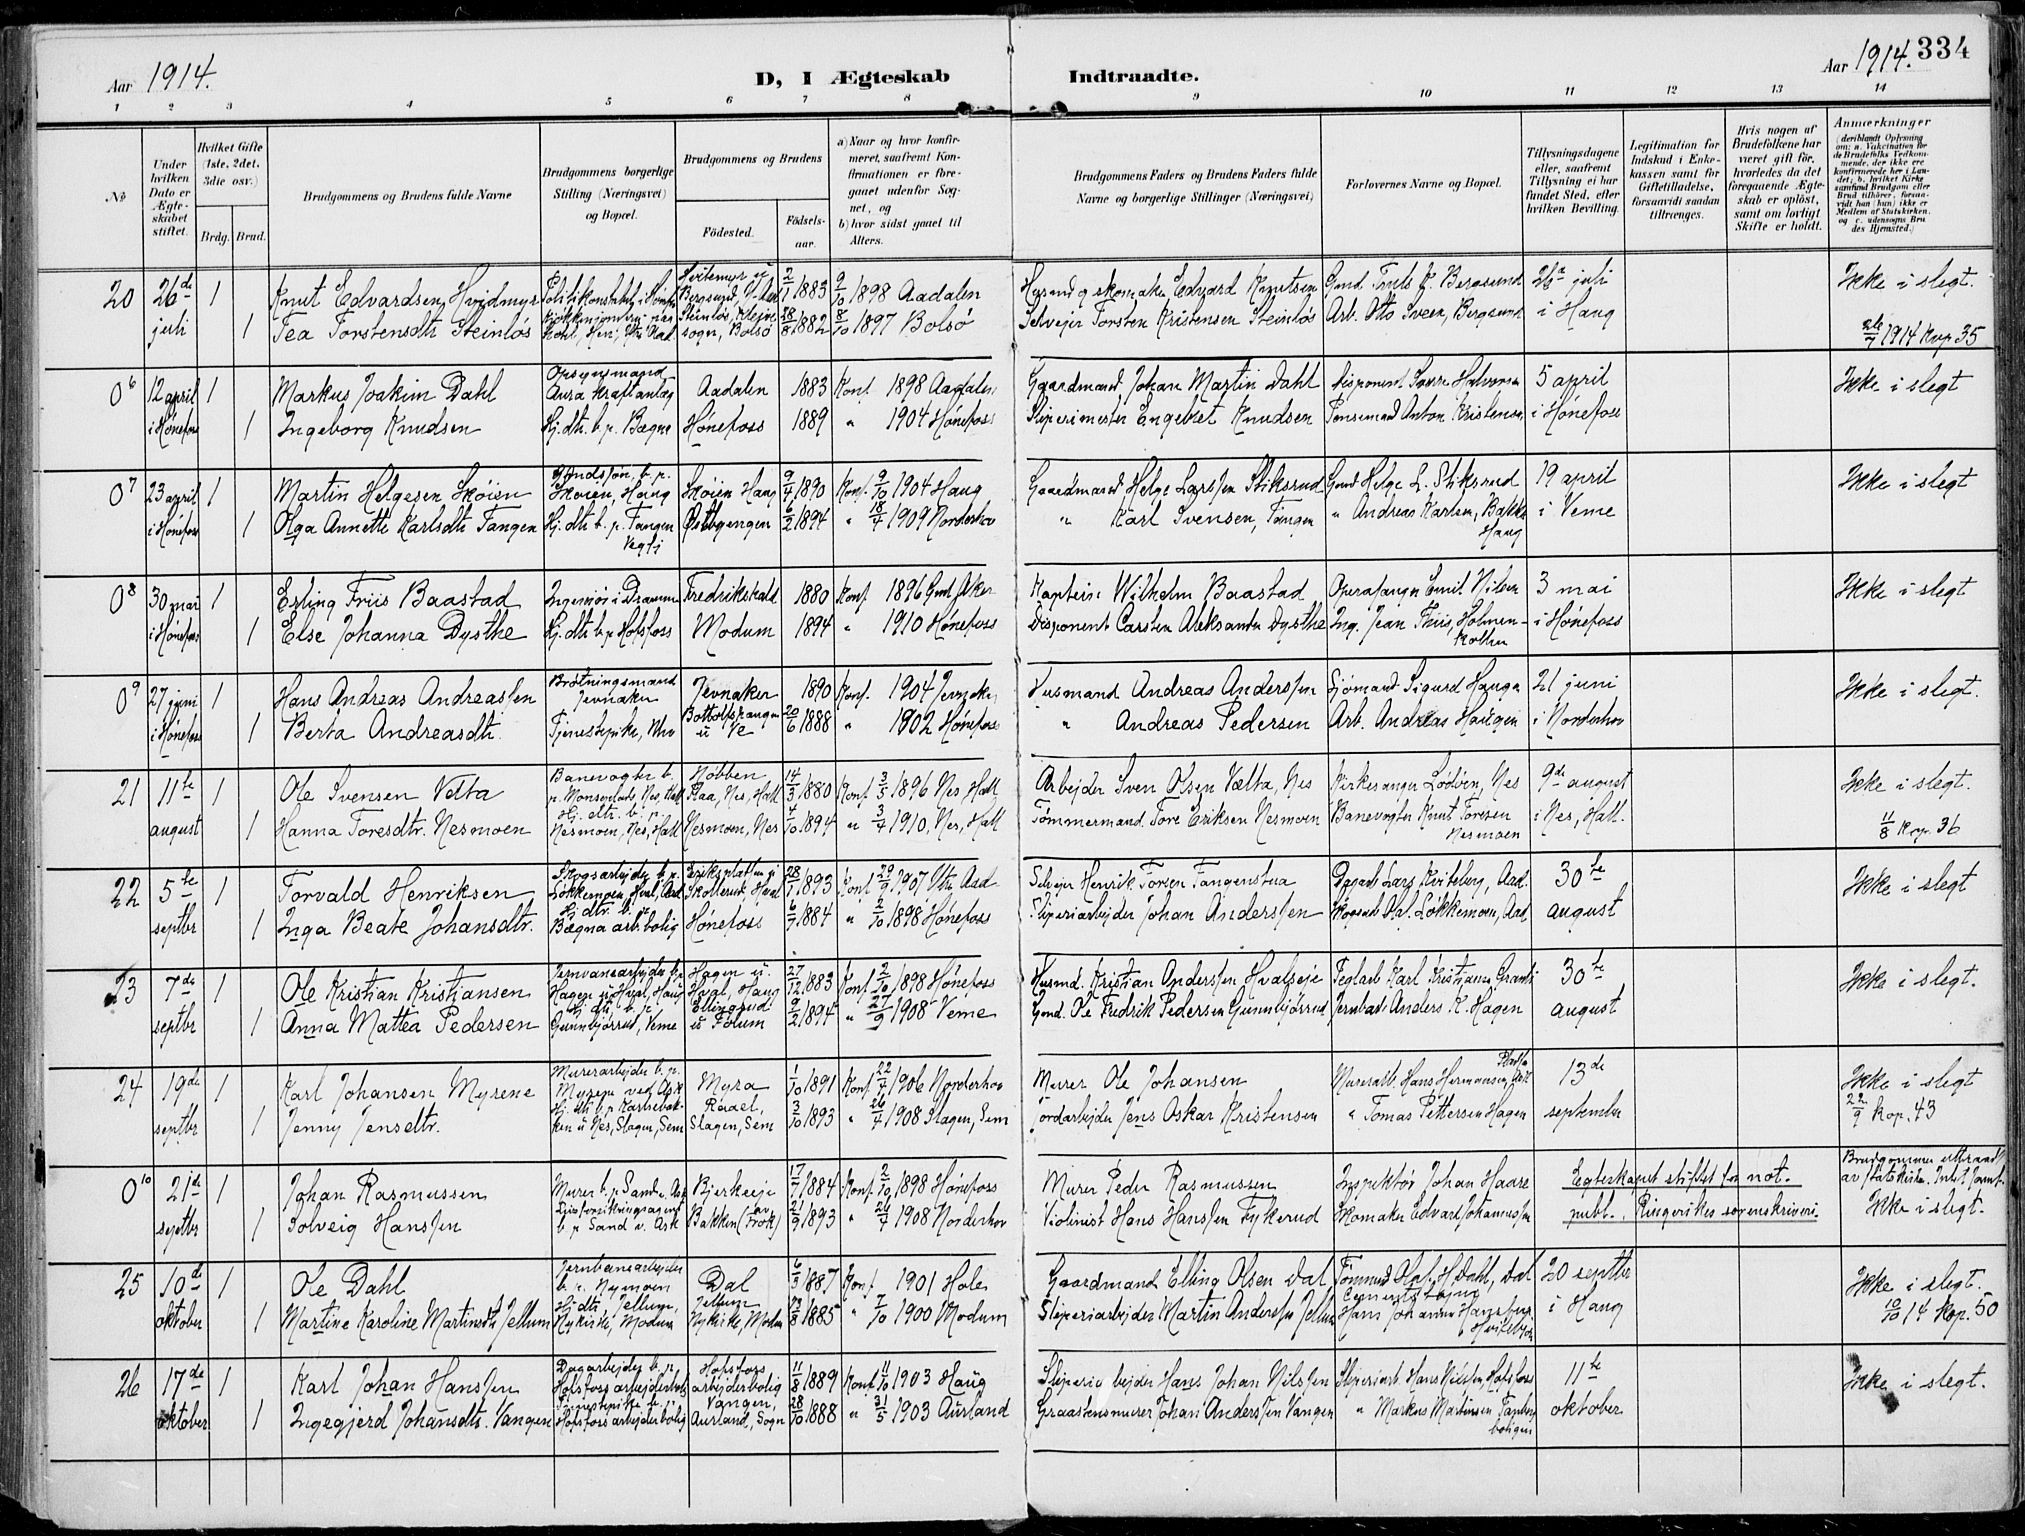 Aar 1914.
D, I Ægteskab Indtraadte.
Aar 1914. 334
1 2 3 4 5 6 7 8 9 10 11 12 13 14
No
Under hvilken Dato er Ægteskabet stiftet.
Hvilket Gifte (1ste, 2det, 3die osv.)
Brdg. Brud.
Brudgommens og Brudens fulde Navne
Brudgommens borgerlige Stilling (Næringsvei) og Bopæl.
Brudgommens og Brudens
Födested.
Födselsaar.
a) Naar og hvor konfirmeret, saafremt Konfirmationen er foregaaet udenfor Sognet, og
b) hvor sidst gaaet til Alters.
Brudgommens Faders og Brudens Faders fulde Navne og borgerlige Stillinger (Næringsvei)
Forlovernes Navne og Bopæl.
Tillysningsdagene eller, saafremt Tillysning ei har fundet Sted, efter hvilken Bevilling.
Legitimation for Indskud i Enkekassen samt for Giftetilladelse, forsaavidt saadan tiltrænges.
Hvis nogen af Brudefolkene har været gift för, hvorledes da det foregaaende Ægteskab er oplöst, samt om lovligt Skifte er holdt.
Anmærkninger
(deriblandt Oplysning om: a. Vakcination for de Brudefolks Vedkommende, der ikke ere konfirmerede her i Landet; b. hvilket Kirkesamfund Brudgom eller Brud tilhörer, forsaavidt han (hun) ikke er Medlem af Statskirken. og c. udensogns Brudes Hjemsted.)
20 26de 1 Knut Edvardsen Hvidmyr 2/1 1883 9/10 1898 Aadalen Edvard Knutsen Bergsund 26de juli Ikke i slegt.
juli 1 Tea Torstensdtr Steinløs sogn, Bolsø 28/8 1882 8/10 1897 Bolsø Selveier Torsten Kristensen Steinløs Arb. Otto Sveen, Bergsund i Haug
26/7 1914 kop 35
06 12 april 1 Markus Joakim Dahl Opsynsmand Aura kraftanlæg Aadalen 1883 Konf. 1898 Aadalen Gaardmand Johan Martin Dahl 5 april Ikke i slegt
i Hønefoss 1 Ingeborg Knudsen Hj. dtr. b. p. Bægna Hønefoss 1889 " 1904 Hønefoss Sliperimester Engebret Knudsen Anton Kristensen i Hønefoss
07 23 april 1 Martin Helgesen Skøien Skøien, Haug Skøien Haug 9/4 1890 Konf. 9/10 1904 Haug Gaardmand Helge Larssen Stiksrud Gmd Helge L. Stiksrud 19 april Ikke i slegt
i Hønefoss 1 Olga Annette Karlsdtr Tangen Hj. dtr b. p. Tangen 6/2 1894 " 18/4 1909 Norderhov " Karl Svensen, Tangen " Andreas Karlsen, Bakke Haug i Veme
08 30 mai 1 Erling Friis Baastad Ingeniør i Drammen Fredrikshald 1880 Konf 1896 Kaptein Wilhelm Baastad Operasanger Emil Nilsen 3 mai Ikke i slegt
i Hønefoss 1 Else Johanna Dysthe Hj. dtr b. p. Hofsfoss Modum 1894 " 1910 Hønefoss Disponent Carsten Aleksander Dysthe Ing. Jean Friis, Holmenkollen i Hønefoss
09 27 juni 1 Hans Andreas Andreassen Jevnaker Jevnaker 1890 Konf. 1904 Jevnaker Husmand Andreas Anderssen Sjømand Sigurd Haugen 21 juni Ikke i slegt.
i Hønefoss 1 Berta Andreasdtr. Tjenestepike, Nhov 20/6 1888 " 1902 Hønefoss " Andreas Pedersen Arb. Andreas Haugen i Norderhov
21 11te 1 Ole Svensen Velta Banevogter b. p. Nøbben 14/3 1880 Konf. 3/5 1896 Nes, Hall Arbejder Sven Olsen Velta, Nes Kirkesanger Lødøen, Nes 9de august Ikke i slegt.
august 1 Hanna Toresdtr. Nesmoen Hj. dtr. b. p. Nesmoen, Nes, Hall Nesmoen, Nes 4/10 1894 " 3/4 1910, Nes, Hall Tømmermand Tore Eriksen Nesmoen Banevogter Knut Toresen Nesmoen i Nes, Hall.
11/8 kop. 36
22 5te 1 Torvald Henriksen Skogsarbejder b. p. 28/1 1893 Konf 29/9 1907 Ytr. Aad Selvejer Henrik Torsen Tangenstua 30te Ikke i slegt
septbr 1 Inga Beate Johansdtr. Hj. dtr. b. p. Bægna arb. bolig Hønefoss 6/7 1884 " 2/10 1898 Hønefoss Sliperiarbejder Johan Anderssen Skogsarb. Olaf Løkkemoen, Aad. august
23 7de 1 Ole Kristian Kristiansen Hagen u. Hval, Haug Hagen u. Hval, Haug 27/12 1883 Konf. 2/10 1898 Hønefoss Husmd. Kristian Anderssen Hvalseje 30te Ikke i slegt.
septbr 1 Anna Mattea Pedersen Gunbjørrud, Veme Ellingsrud 9/2 1894 " 27/9 1908 Veme Gmd. Ole Fredrik Pedersen Gunnbjørrud Jernbarb Anders K. Hagen august
24 19de 1 Karl Johansen Myrene Murerarbejder b. p. Myrene ved Ask Myra 1/10 1891 Konf. 22/7 1906 Norderhov Murer Ole Johansen Murerarb. Hans Hermansen, Ask 13de Ikke i slegt
septbr 1 Jenny Jensdtr. u Nes, Slagen, Sem Raael, Slagen, Sem 3/10 1893 " 26/4 1908 Slagen, Sem Jordarbejder Jens Oskar Kristensen " Tomas Pettersen Hagen september 22/9 kop. 43
010 21de 1 Johan Rasmussen Murer b. p. Sand v. Ask Bjerkeeje 17/7 1884 Konf. 2/10 1898 Hønefoss Murer Peder Rasmussen Inspektør Johan Haare Egteskapet stiftet for not. Brudgommen utraadt av statskirken.
septbr 1 Solveig Hanssen b. p. Sand v. Ask Bakken 21/9 1893 " 26/4 1908 Norderhov Violinist Hans Hanssen Fykerud Skomaker Edvart Johannessen publ. Ringerikes sorenskriveri. Ikke i slegt.
25 10de 1 Ole Dahl Jernbanearbejder b. p. Nymoen Dal 6/9 1887 Konf. 1901 Hole Gaardmand Elling Olsen Dal Tømmerm. Olaf H. Dahl, Dal 20 septbr Ikke i slegt.
oktober 1 Martine Karoline Martinsdtr Jellum Hj. dtr, Jellum, Nykirke, Modum Jellum Nykirke, Modum 1885 " 7/10 1900 Modum Sliperiarbejder Martin Anderssen Jellum Hans Johannes Hanssen i Haug
10/10 14 kop. 50
26 17de 1 Karl Johan Hanssen Dagarbejder b. p. Hofsfoss arbejderbolig Hofsfoss arbejderbolig 11/8 1889 Konf 11/10 1903 Haug Sliperiarbejder Hans Johan Nilssen Sliperiarb. Hans Nilssen, Hofsfoss 11te Ikke i slegt.
oktober 1 Ingegjerd Johansdtr. Vangen Tjenestepike b. p. Hofsfoss arbejderbolig Vangen, Aurland, Sogn 28/10 1888 " 31/5 1903 Aurland Graastensmurer Johan Anderssen Vangen " Markus Martinsen oktober